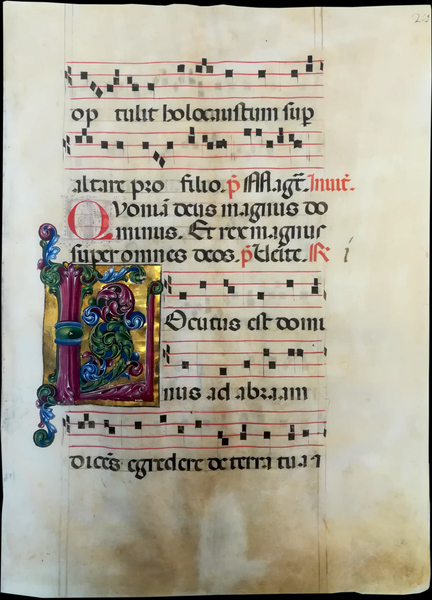 op tulit holocaustum sup
altare pro filio. p̄ Mag̃t. Inuit̃.
Quoniã deus magnus do
minus. Et rex magnus
super omnes deos. p̄ Ueite. R̃ i
Locutus est domi
nus ad abraam
dicẽs egredere de terra tua